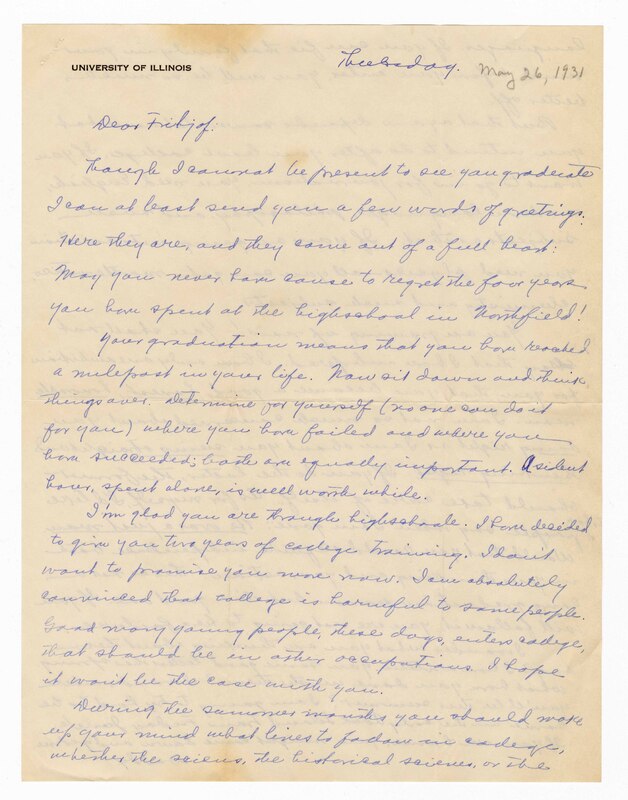 UNIVERSITY OF ILLINOIS
Thursday.
May 26, 1931
Dear Fritjof.
Though I cannot be present to see you graduate
I can at least send you a few words of greetings.
Here they are, and they come out of a full heart:
May you never have cause to regret the four years
you have spent at the highschool in Northfield!
Your graduation means that you have reached
a milepost in your life. Now sit down and think
things over. Determine for yourself (no one can do it
for you) where you have failed and where you
have succeeded; both are equally important. A silent
hour, spent alone, is well worth while.
I'm glad you are through highschool. I have decided
to give you two years of college training. I don't
want to promise you more now. I am absolutely
convinced that college is harmful to some people.
Good many young people, these days, enters college,
that should be in other occupations. I hope
it won't be the case with you.
During the summer months you should make
up your mind what lines to follow in college,
whether the sciens, the historical sciences, or the